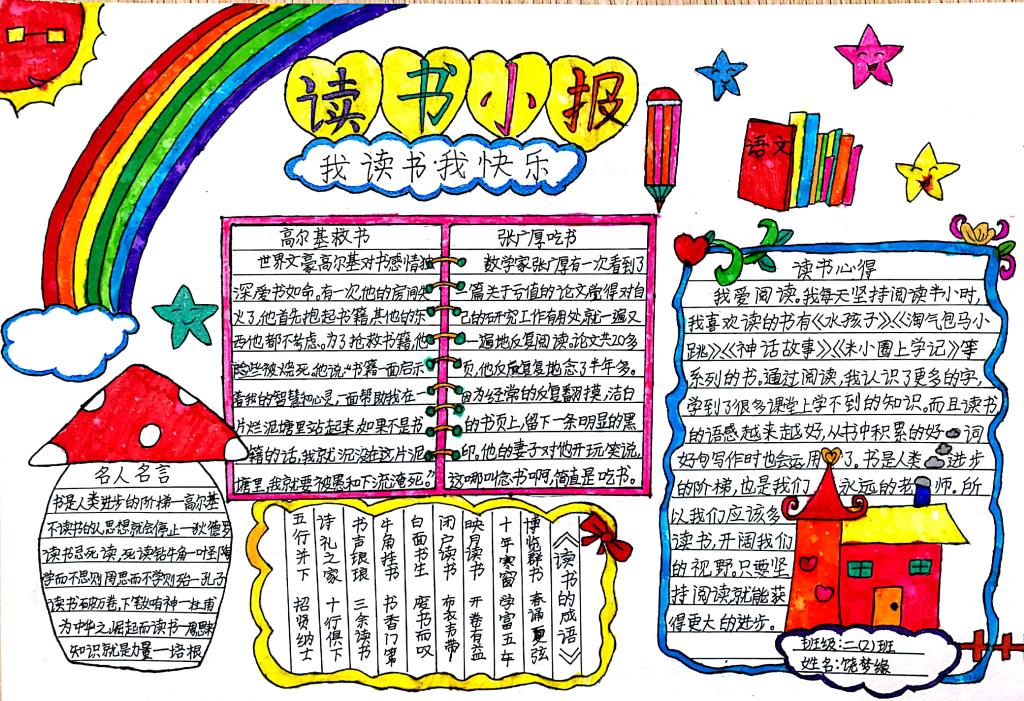 读书小报
我读书·我快乐
语文
高尔基救书
世界文豪高尔基对书感情独
深,爱书如命。有一次,他的房间失
火了,他首先抱起书籍,其他的东
西他都不考虑。为了抢救书籍,他
险些被烧死。他说:“书籍一面启示
着我的智慧和心灵,一面帮助我在一
片烂泥塘里站起来,如果不是书
籍的话,我就沉没在这片泥
塘里,我就要被愚和下流淹死。”
张广厚吃书
数学家张广厚有一次看到了
一篇关于亏值的论文,觉得对自
己的研究工作有用处,就一遍又
一遍地反复阅读。论文共20多
页,他反反复复地念了半年多。
因为经常的反复翻摸,洁白
的书页上,留下一条明显的黑
印。他的妻子对他开玩笑说,
这哪叫念书啊,简直是吃书。
读书心得
我爱阅读。我每天坚持阅读半小时,
我喜欢读的书有《水孩子》《淘气包马小
跳》《神话故事》《米小圈上学记》等
系列的书。通过阅读,我认识了更多的字,
学到了很多课堂上学不到的知识。而且读书
的语感越来越好,从书中积累的好词
好句写作时也会运用了。书是人类进步
的阶梯,也是我们永远的老师。所
以我们应该多
读书,开阔我们
的视野。只要坚
持阅读就能获
得更大的进步。
名人名言
书是人类进步的阶梯—高尔基
不读书的人思想就会停止—狄德罗
读书忌死读,死读钻牛角—叶圣陶
学而不思则罔思而不学则殆—孔子
读书破万卷,下笔如有神—杜甫
为中华之崛起而读书—周恩来
知识就是力量—培根
《读书的成语》
博览群书 春诵夏弦
十年寒窗 学富五车
映月读书 开卷有益
闭户读书 布衣韦带
白面书生 废书而叹
牛角挂书 书香门第
书声琅琅 三余读书
诗礼之家 十行俱下
五行并下 招贤纳士
班级:二(2)班
姓名:饶梦缘